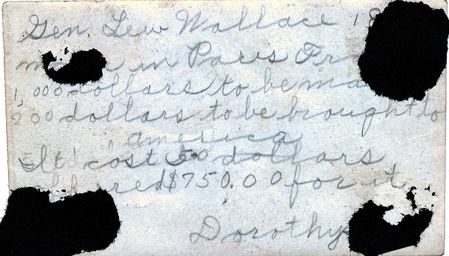 Gen. Lew Wallace 18
m in Paris Fr
1,000 dollars to be ma
200 dollars to be brought to
America
It cost 50 dollars
ffered $750.00 for it
Dorothy